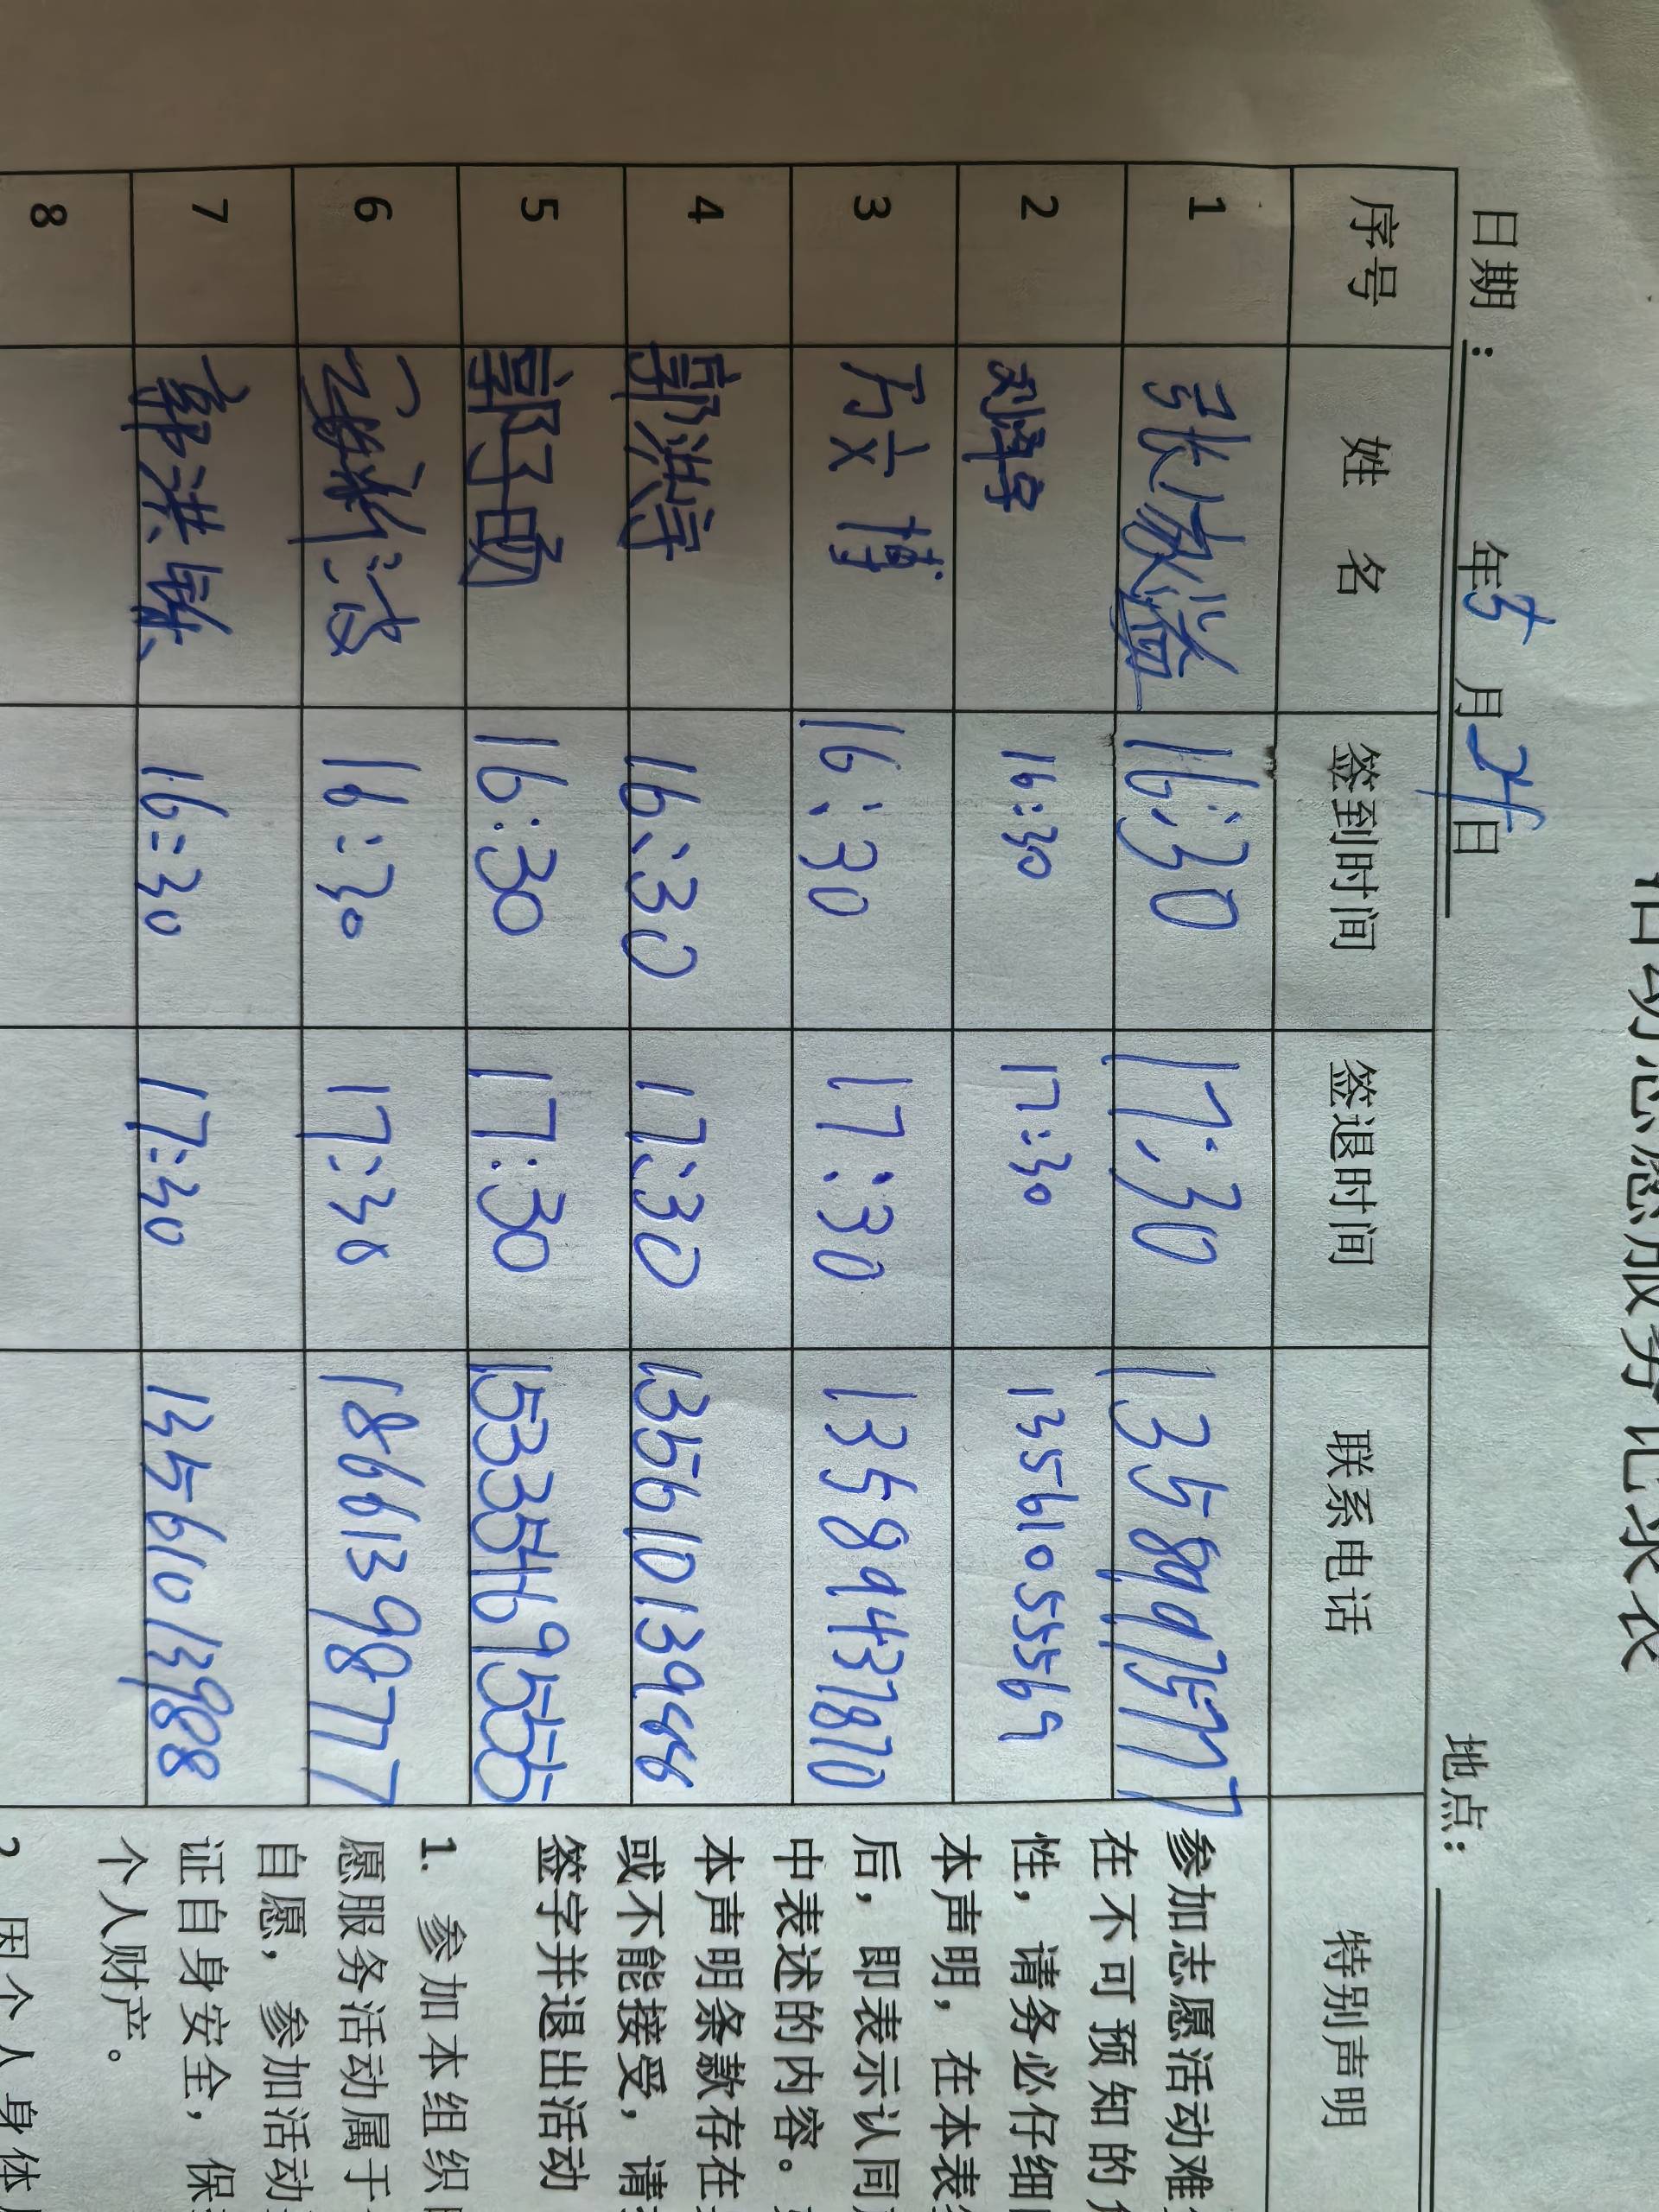 活动志愿服务记录表
日期： 年5月21日 地点：
序号 姓 名 签到时间 签退时间 联系电话 特别声明
1 张 16:30 17:30
2 刘泽宇 16:30 17:30 13561055569
3 方文博 16:30 17:30 13589437870
4 郭洪宇 16:30 17:30 13561013966
5 郭子勋 16:30 17:30 15335469555
6 16:30 17:30 18661398777
7 郭洪 16:30 17:30 13561013988
8
参加志愿活动难
在不可预知的
性，请务必仔细
本声明，在本表
后，即表示认同
中表述的内容。
本声明条款存在
或不能接受，请
签字并退出活动
1. 参加本组织
愿服务活动属于
自愿，参加活动
证自身安全，保
个人财产。
2. 因个人身体